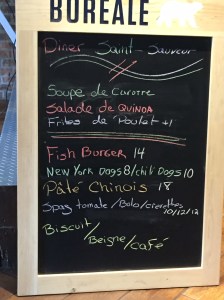 BORÉALE
Dîner Saint-Sauveur
Soupe de Carotte
Salade de QUINOA
Frites de Poulet +1
Fish Burger 14
New York Dogs 8/chili Dogs 10
Pâté Chinois 18
Spag tomate/Bolo/crevettes
10/12/12
Biscuit/
Beigne/café